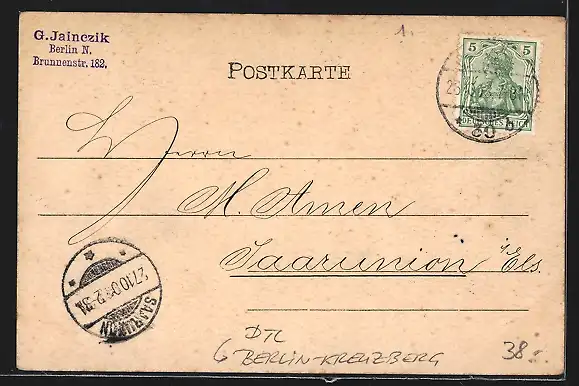 G. Jainczik
Berlin N.
Brunnenstr. 182.
1.-
POSTKARTE
5 5
DEUTSCHES REICH
80 b
Herrn
M. Amen
Saarunion i/Els.
27.10.0
SAARUNION
DTL
6 BERLIN-KREUZBERG
38.-